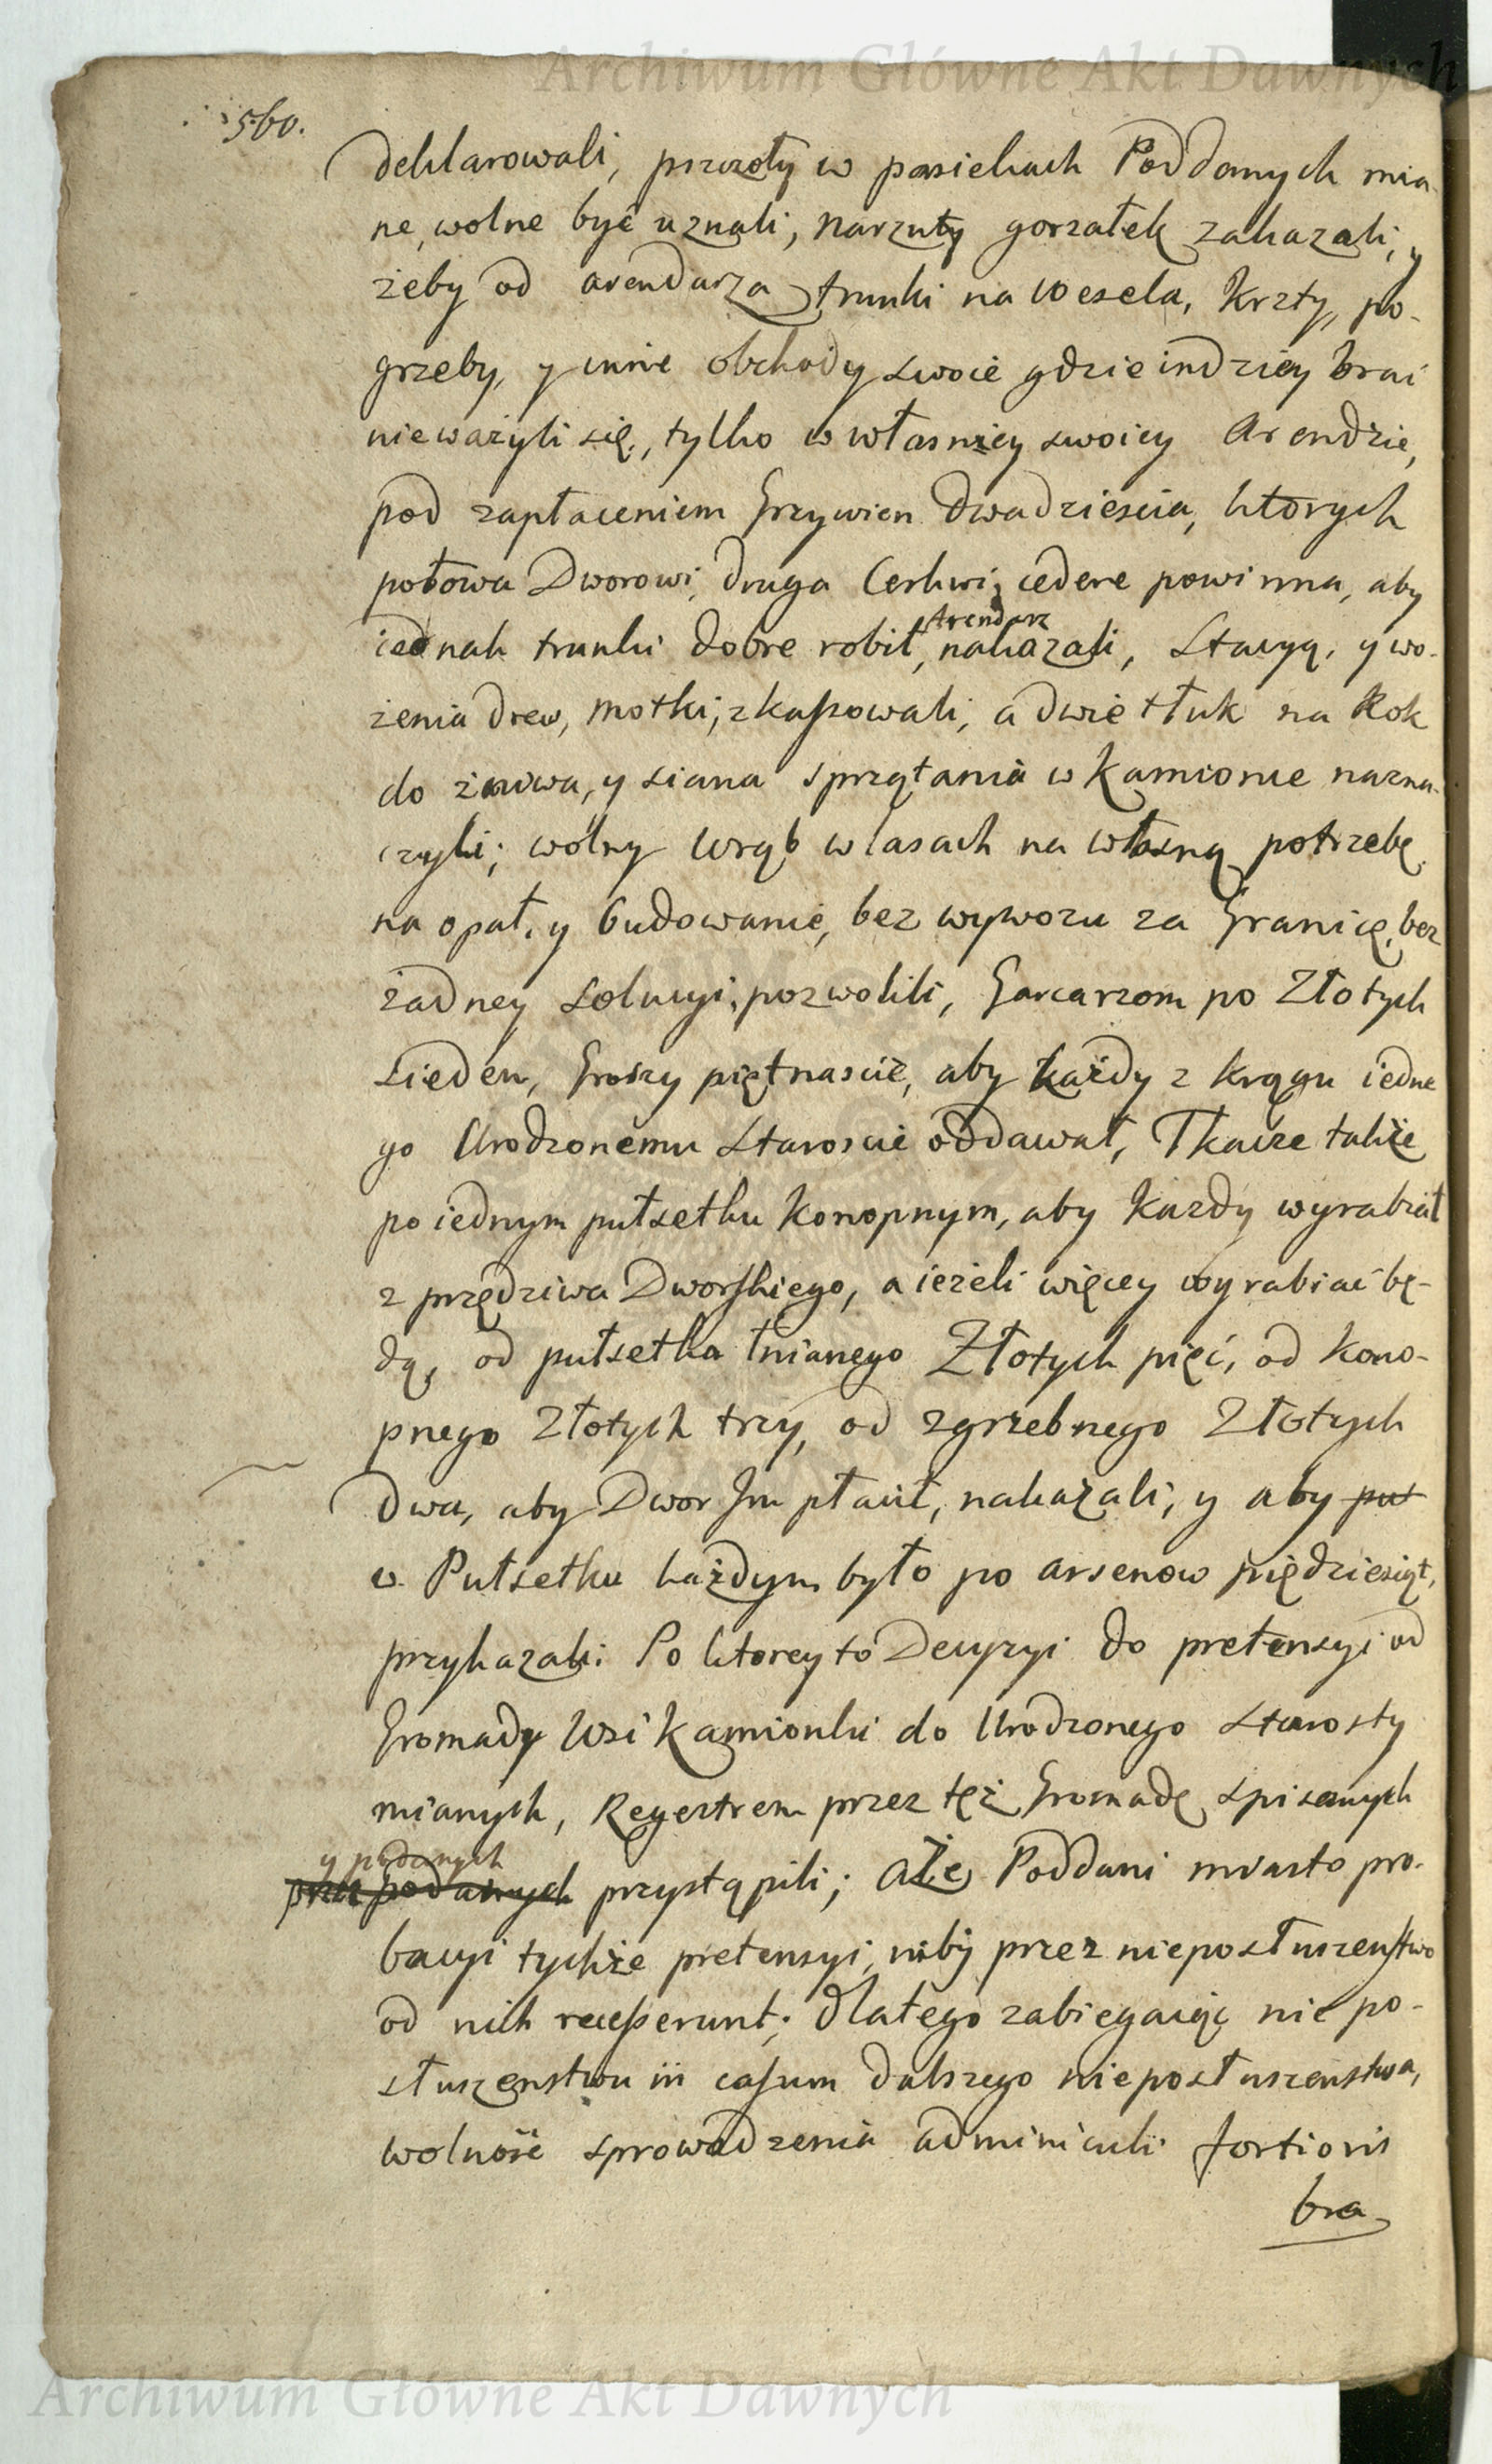 Archiwum Główne Akt Dawnych
560.
deklarowali, pszczoły w pasiekach Poddanych mia-
ne, wolne być uznali, narzuty gorzałek zakazali, y
żeby od arendarza trunki na Wesela, Krzty, po-
grzeby, y inne obchody swoie gdzie indziey brać
nieważyli się, tylko w własney swoiey Arendzie,
pod zapłaceniem Grzywien Dwadzieścia, ktorych
połowa Dworowi, druga Cerkwi, cedere powinna, aby
Arendarz
iednak trunki dobre robił, nakazali, Stacyą, y wo-
żenia drew, motki, zkassowali, a dwie tłuk na Rok
do żniwa, y siana sprzątania w Kamionce nazna-
czyli; wolny Wrąb w lasach na własną potrzebę
na opał, y budowanie, bez wywozu za Granicę, bez
żadney Solucyi, pozwolili, Garcarzom po Złotych
Siedem, Groszy piętnaście, aby każdy z Kręgu iedne
go Urodzonemu Staroscie oddawał, Tkacze takze
po iednym pułsetku Konopnym, aby Każdy wyrabiał
z przędziwa Dworskiego, a ieżeli więcey wyrabiać bę-
dą, od pułsetka lnianego Złotych pięć, od Kono-
pnego Złotych trzy, od zgrzebnego Złotych
Dwa, aby Dwor Im płacił, nakazali, y aby puł
w Pułsetku każdym było po arszenow piędziesiąt,
przykazali. Po ktorey to Decyzyi do pretensyi od
Gromady Wsi Kamionki do Urodzonego Starosty
mianych, Regestrem przez też Gromadę spisanych
y podanych
przez podanych przystąpili; Ale Poddani miasto pro-
bacyi tychże pretensyi, niby przez nieposłuszeństwo
od nich recesserunt; Dlatego zabiegaiąc niepo-
słuszenstwu in casum dalszego nieposłuszenstwa,
wolność sprowadzenia adminiculi fortioris
bra
Archiwum Główne Akt Dawnych